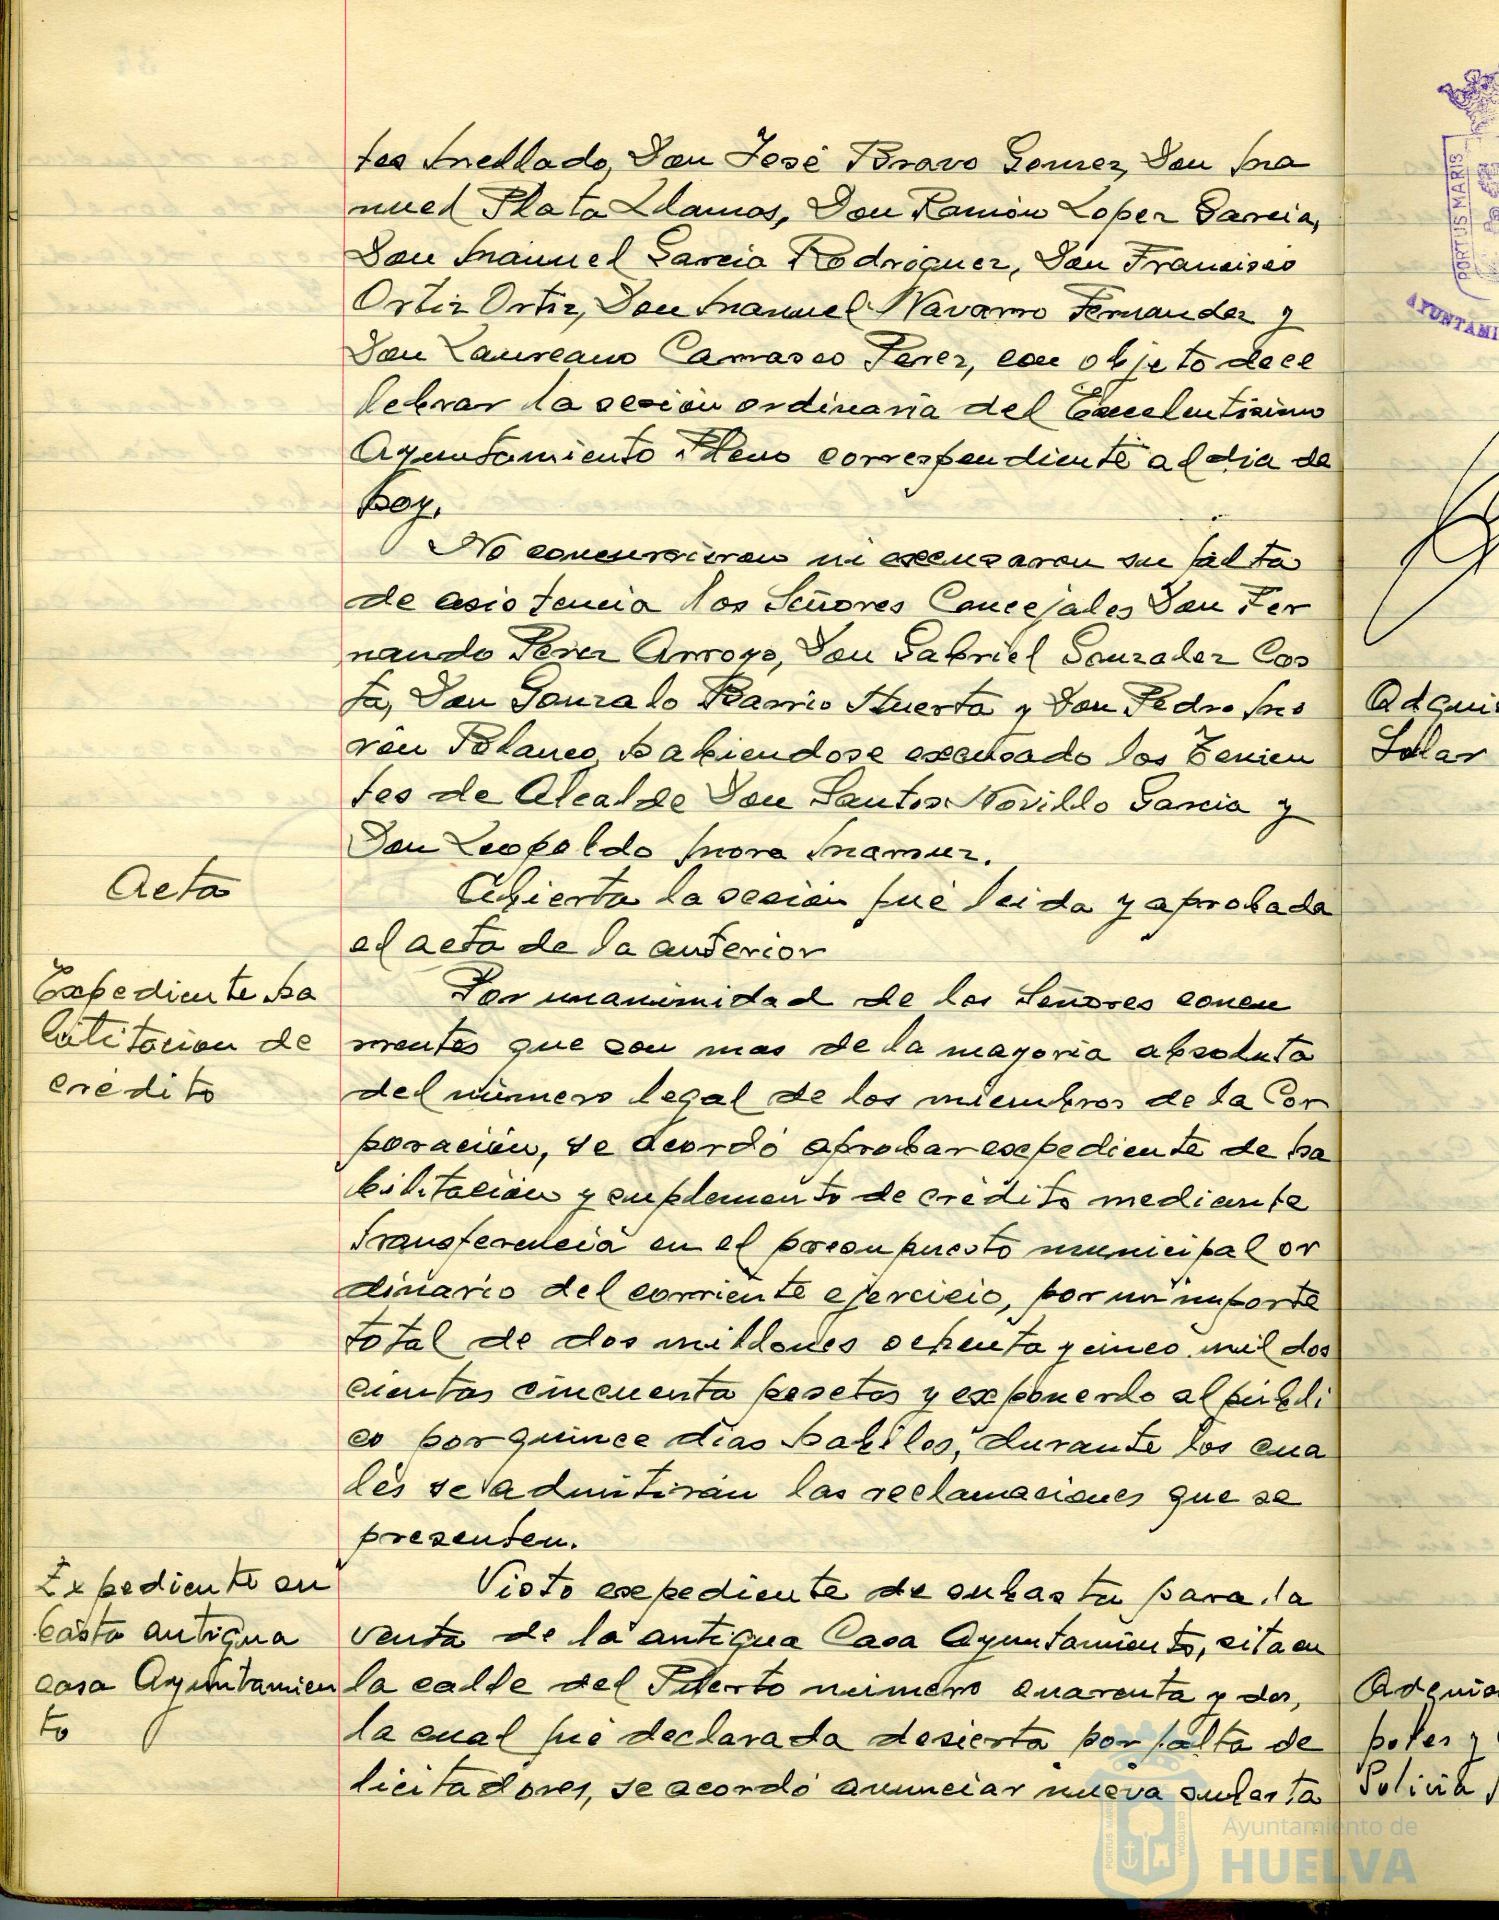 tes Mellado, Don José Bravo Gomez, Don Ma
nuel Plata Llamas, Don Ramón Lopez Garcia,
Don Manuel Garcia Rodriguez, Don Francisco
Ortiz Ortiz, Don Manuel Navarro Fernandez y
Don Laureano Carrasco Perez, con objeto de ce
lebrar la sesión ordinaria del Excelentisimo
Ayuntamiento Pleno correspondiente al dia de
hoy.
No concurrieron ni excusaron su falta
de asistencia los Señores Concejales Don Fer
nando Perez Arroyo, Don Gabriel Gonzalez Cos
ta, Don Gonzalo Barrio Huerta y Don Pedro Mo
rón Polanco, habiendose excusado los Tenien
tes de Alcalde Don Santos Novillo Garcia y
Don Leopoldo Mora
Acta
Abierta la sesión fué leida y aprobada
el acta de la anterior
Expediente ha
bilitacion de
crédito
Por unanimidad de los Señores concu
rrentes que son mas de la mayoria absoluta
del número legal de los miembros de la Cor
poración, se acordó aprobar expediente de ha
bilitación y suplemento de crédito mediante
transferencia en el presupuesto municipal or
dinario del corriente ejercicio, por un importe
total de dos millones ochenta y cinco mil dos
cientas cincuenta pesetas y exponerlo al públi
co por quince dias habiles, durante los cua
les se admitirán las reclamaciones que se
presenten.
Expediente su
basta antigua
casa Ayuntamien
to
Visto expediente de subasta para la
venta de la antigua Casa Ayuntamiento, sita en
la calle del Puerto número cuarenta y dos,
la cual fué declarada desierta por falta de
licitadores, se acordó anunciar nueva subasta
PORTUS MARIS
AYUNTAMI
Adquis
Solar
Adquis
Policia
Ayuntamiento de
HUELVA